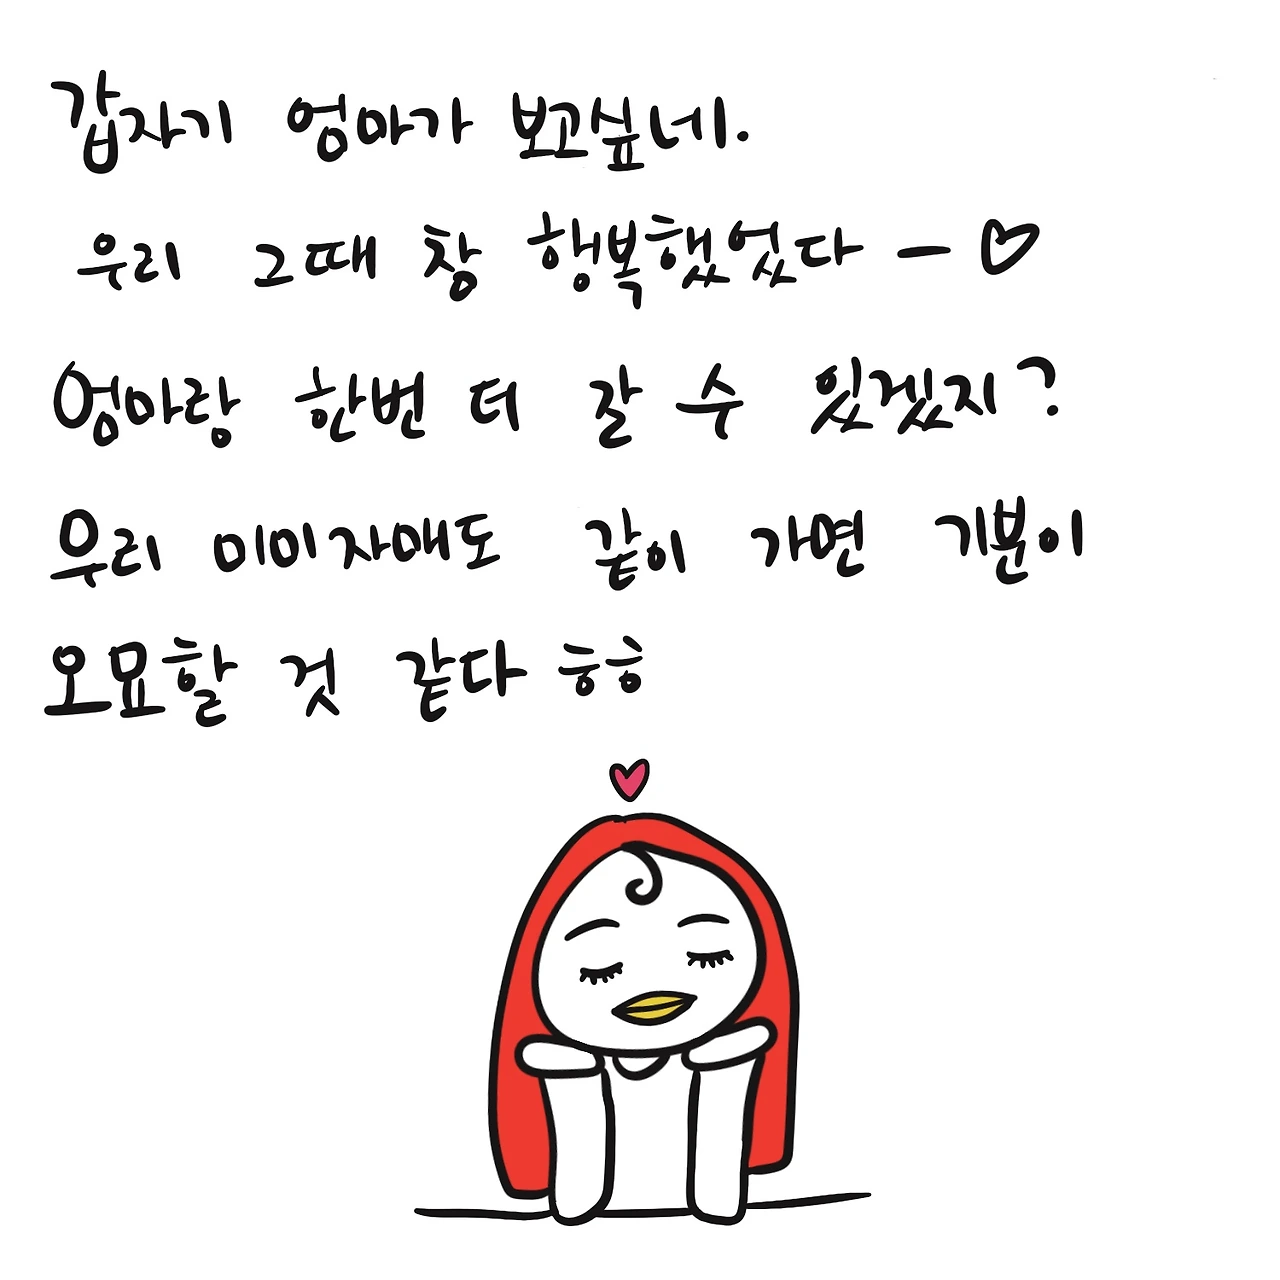 갑자기 엄마가 보고싶네.
우리 그때 참 행복했었다 - ♡
엄마랑 한번 더 갈 수 있겠지?
우리 미미자매도 같이 가면 기분이
오묘할 것 같다 ㅎㅎ